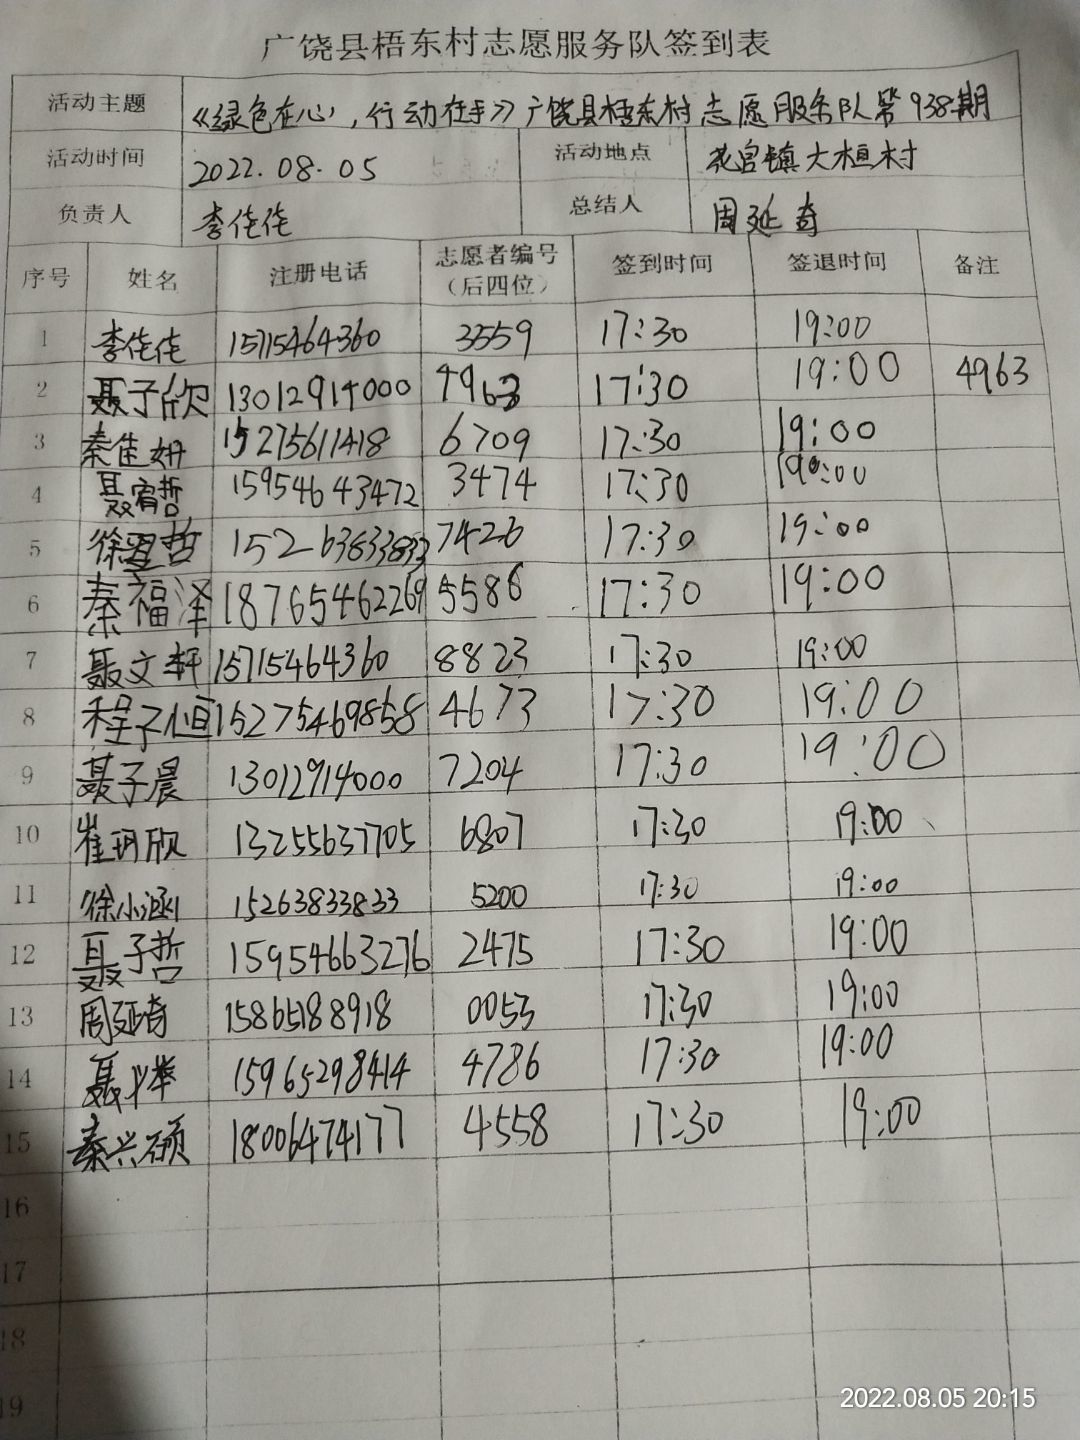 广饶县梧东村志愿服务队签到表
活动主题 《绿色在心,行动在手》广饶县梧东村志愿服务队第938期
活动时间 2022.08.05 活动地点 花官镇大桓村
负责人 李佳佳 总结人 周延奇
序号 姓名 注册电话 志愿者编号（后四位） 签到时间 签退时间 备注
1 李佳佳 15715464360 3559 17:30 19:00
2 聂子欣 13012914000 4963 17:30 19:00 4963
3 秦佳妍 15275611418 6709 17:30 19:00
4 聂宥哲 15954643472 3474 17:30 19:00
5 徐 哲 15263833833 7426 17:30 19:00
6 秦福泽 18765462269 5586 17:30 19:00
7 聂文轩 15715464360 8823 17:30 19:00
8 程子恒 15275469858 4673 17:30 19:00
9 聂子晨 13012914000 7204 17:30 19:00
10 崔玥欣 13255637705 6807 17:30 19:00
11 徐小涵 15263833833 5200 17:30 19:00
12 聂子哲 15954663276 2475 17:30 19:00
13 周延奇 15865188918 0053 17:30 19:00
14 聂 15965298414 4786 17:30 19:00
15 秦兴硕 18006474177 4558 17:30 19:00
16
17
18
19
2022.08.05 20:15